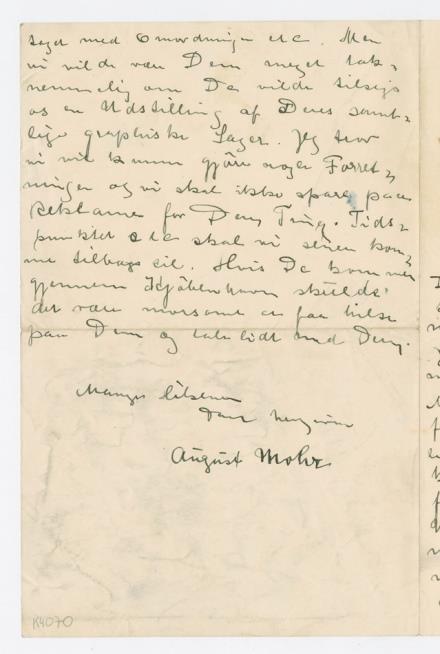 taget med Omordninger etc. Men
vi vilde være Dem meget tak=
nemmelig om De vilde tilsige
os en Udstilling af Deres samt=
lige graphiske Sager. Jeg tror
vi vil kunne gjöre noget Forret=
ninger og vi skal ikke spare paa
Reklamen for Deres Ting. Tids=
punktet etc skal vi senere kom=
me tilbage til. Hvis De kommer
gjennem Kjøbenhavn skulde
det være morsomt at faa hilse
paa Dem og tale lidt med Dem.
Mange hilsener
Deres hengivne
August Mohr
K4070